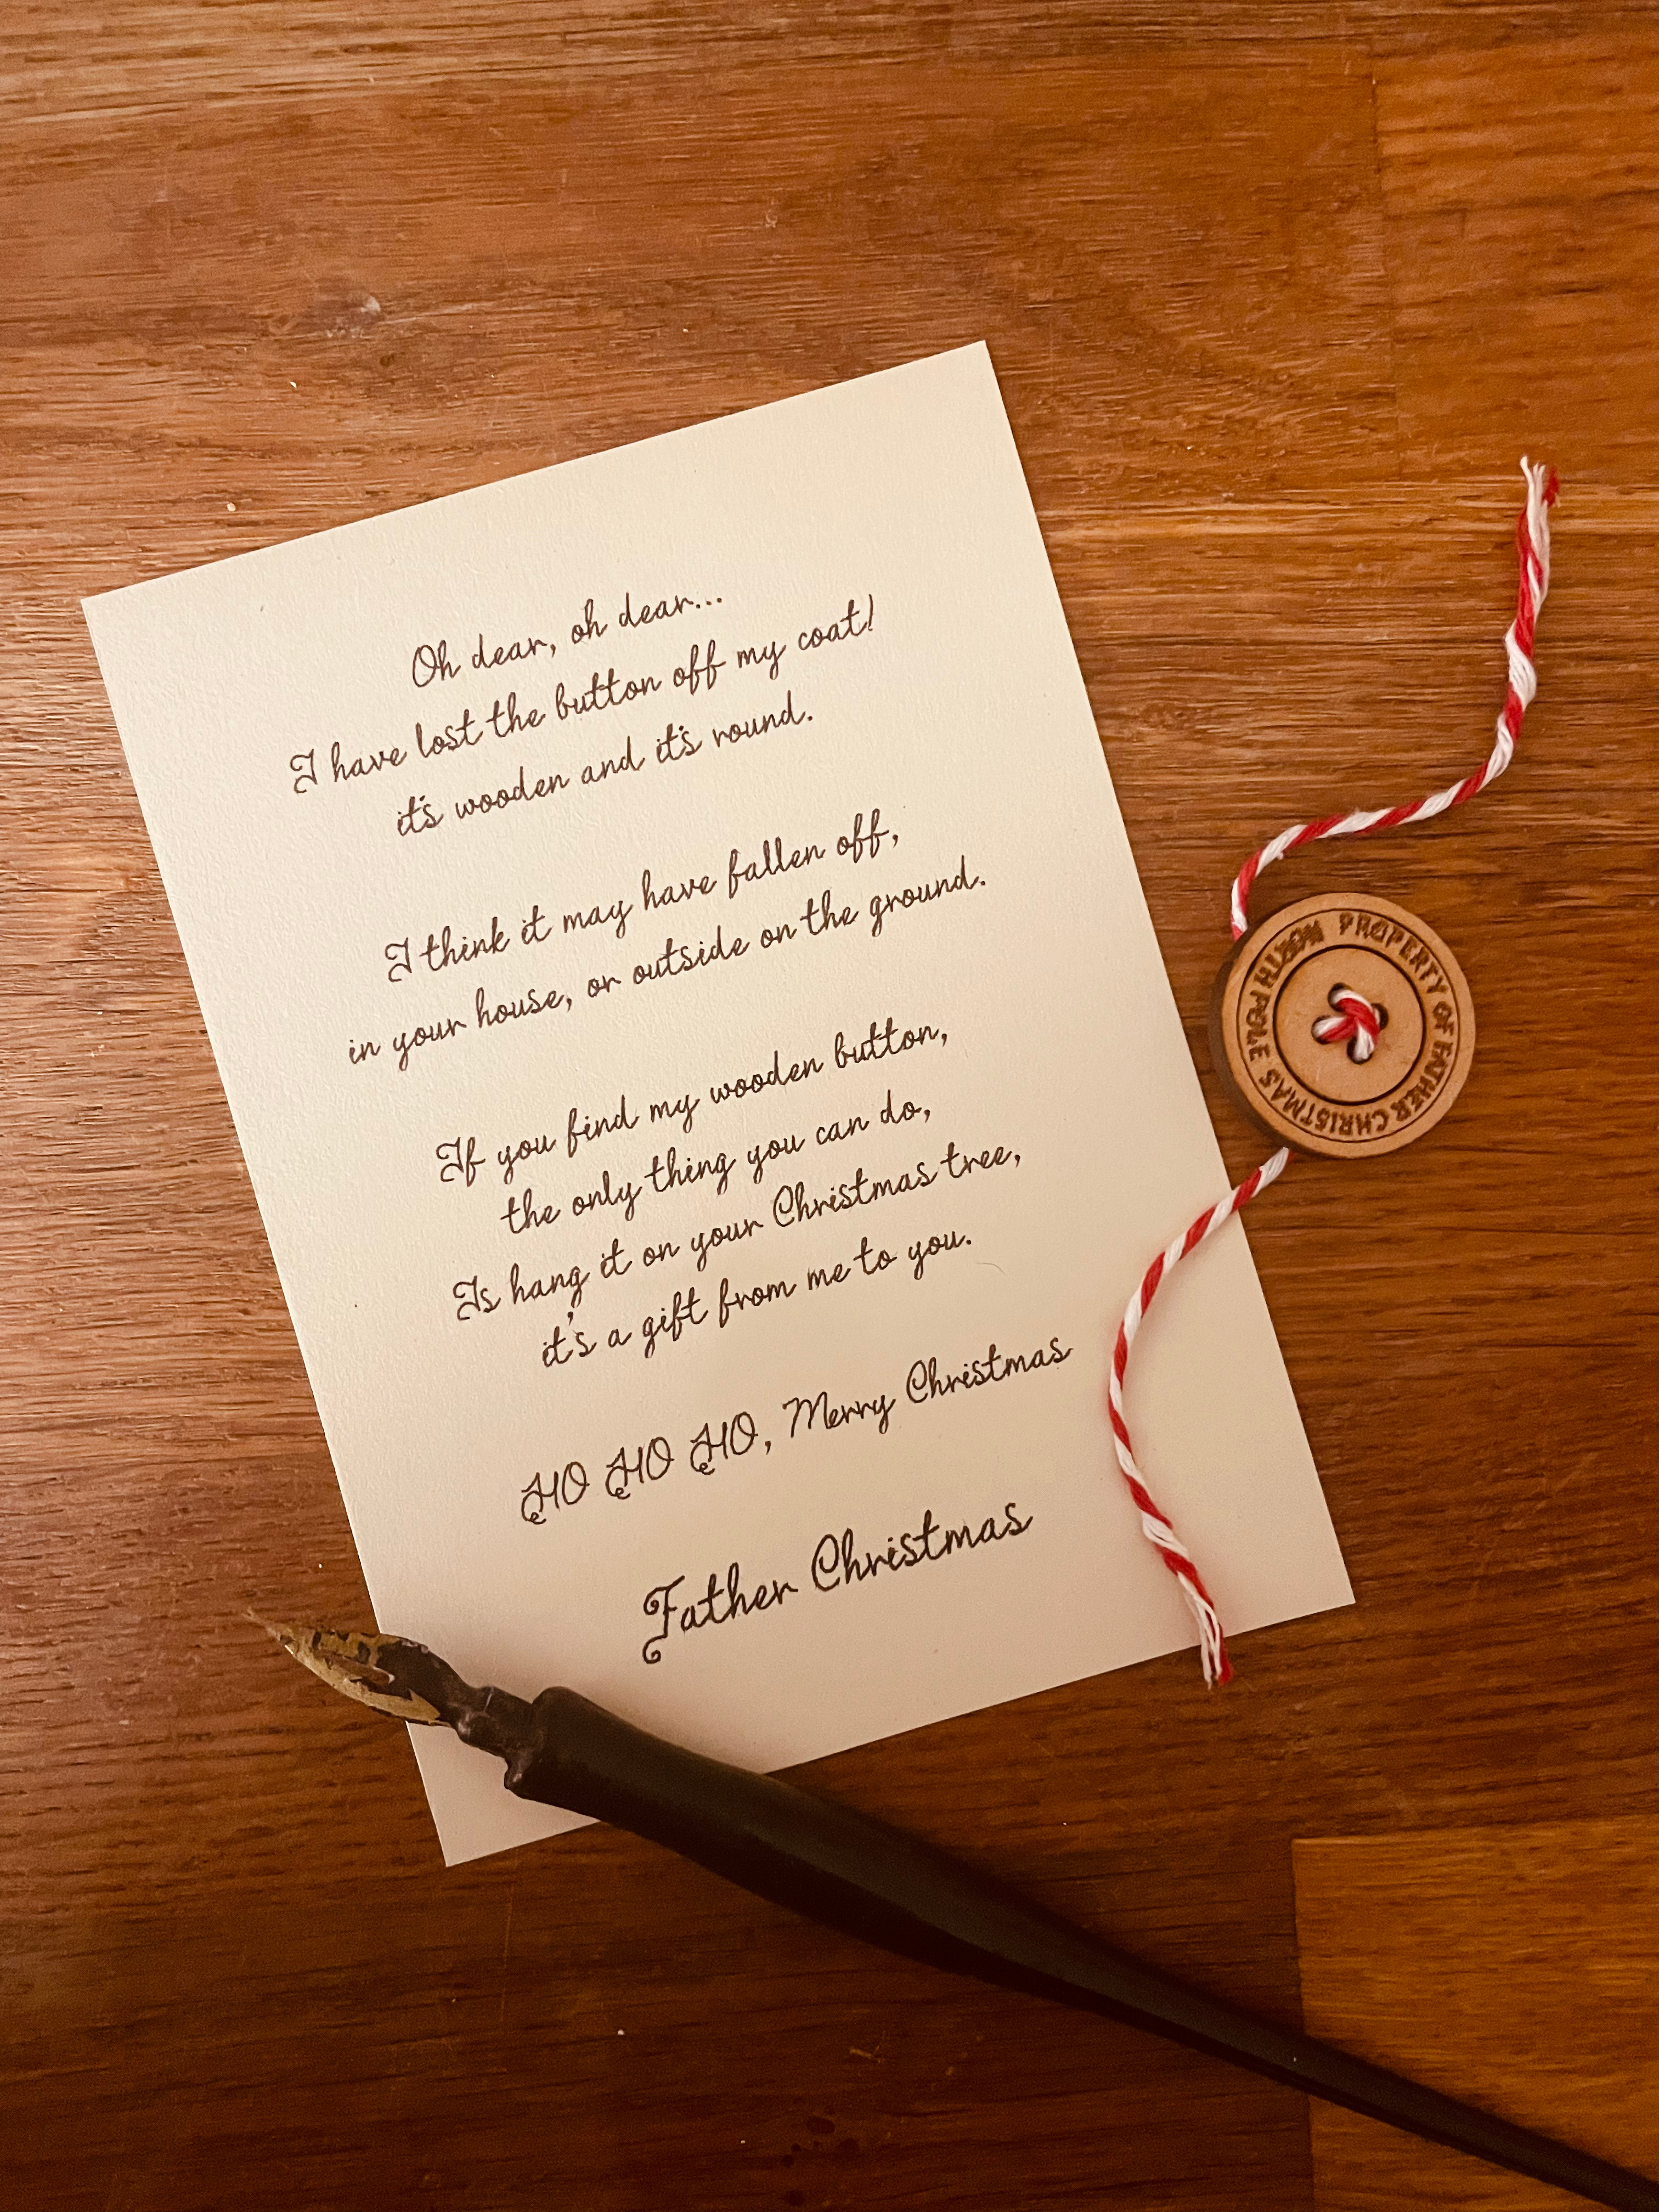 Oh dear, oh dear...
I have lost the button off my coat!
it's wooden and it's round.
I think it may have fallen off,
in your house, or outside on the ground.
If you find my wooden button,
the only thing you can do,
Is hang it on your Christmas tree,
it's a gift from me to you.
HO HO HO, Merry Christmas
Father Christmas
PROPERTY OF FATHER CHRISTMAS NORTH POLE